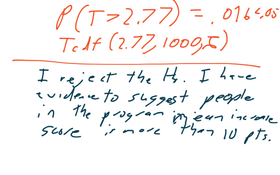 P(T>2.77) = .0196<.05
Tcdf(2.77,1000,5)
I reject the H₀. I have
evidence to suggest people
in the program mean increase
score is more than 10 pts.